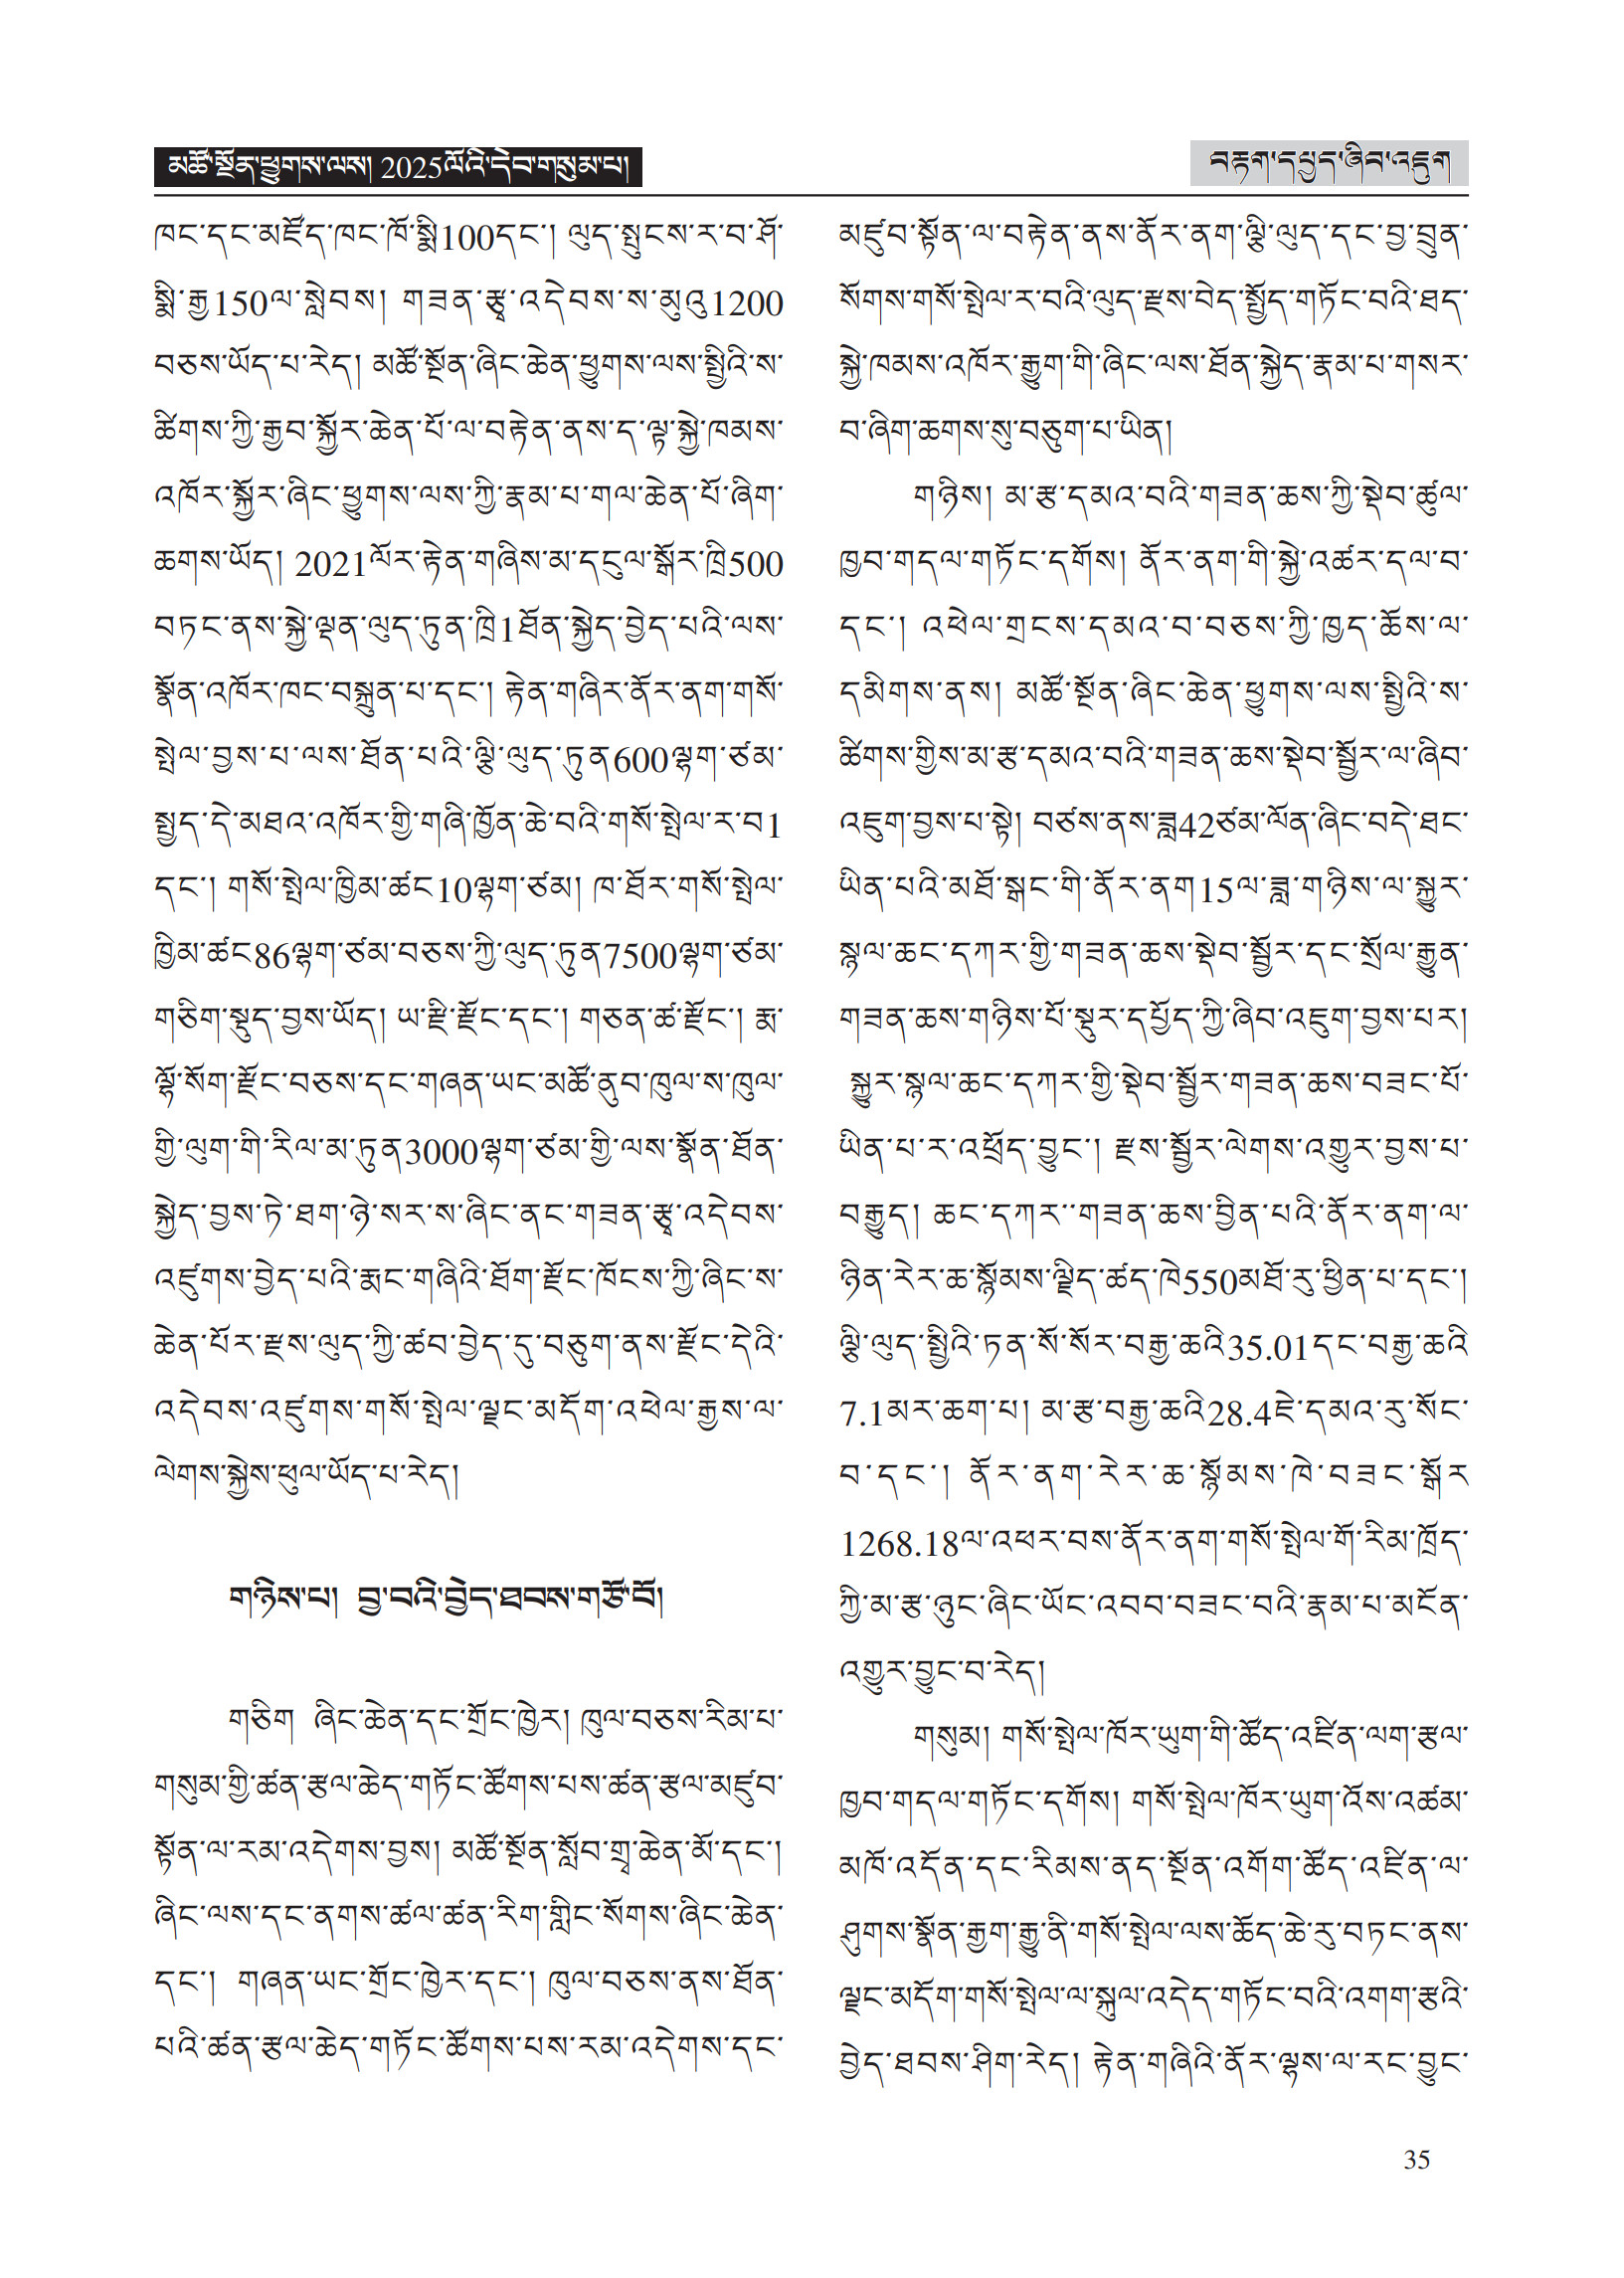 མཚོ་སྔོན་ཕྱུགས་ལས། 2025ལོའི་དེབ་གསུམ་པ།
བརྟག་དཔྱད་ཞིབ་འཇུག
ཁང་དང་མཛོད་ཁང་ཁོ་སྨི100དང་། ལུད་སྤུངས་ར་བ་ཤོ་
སྨི་རྒྱ150ལ་སླེབས། གཟན་རྩྭ་འདེབས་ས་མུའུ1200
བཅས་ཡོད་པ་རེད། མཚོ་སྔོན་ཞིང་ཆེན་ཕྱུགས་ལས་སྤྱིའི་ས་
ཚིགས་ཀྱི་རྒྱབ་སྐྱོར་ཆེན་པོ་ལ་བརྟེན་ནས་ད་ལྟ་སྐྱེ་ཁམས་
འཁོར་སྐྱོར་ཞིང་ཕྱུགས་ལས་ཀྱི་རྣམ་པ་གལ་ཆེན་པོ་ཞིག་
ཆགས་ཡོད། 2021ལོར་རྟེན་གཞིས་མ་དངུལ་སྒོར་ཁྲི500
བཏང་ནས་སྐྱེ་ལྡན་ལུད་ཏུན་ཁྲི1ཐོན་སྐྱེད་བྱེད་པའི་ལས་
སྣོན་འཁོར་ཁང་བསྐྲུན་པ་དང་། རྟེན་གཞིར་ནོར་ནག་གསོ་
སྤེལ་བྱས་པ་ལས་ཐོན་པའི་ལྕི་ལུད་ཏུན600ལྷག་ཙམ་
སྤྱད་དེ་མཐའ་འཁོར་གྱི་གཞི་ཁྱོན་ཆེ་བའི་གསོ་སྤེལ་ར་བ1
དང་། གསོ་སྤེལ་ཁྱིམ་ཚང10ལྷག་ཙམ། ཁ་ཐོར་གསོ་སྤེལ་
ཁྱིམ་ཚང86ལྷག་ཙམ་བཅས་ཀྱི་ལུད་ཏུན7500ལྷག་ཙམ་
གཅིག་སྡུད་བྱས་ཡོད། ཡ་རྫི་རྫོང་དང་། གཅན་ཚ་རྫོང་། རྨ་
ལྷོ་སོག་རྫོང་བཅས་དང་གཞན་ཡང་མཚོ་ནུབ་ཁུལ་ས་ཁུལ་
གྱི་ལུག་གི་རིལ་མ་ཏུན3000ལྷག་ཙམ་གྱི་ལས་སྣོན་ཐོན་
སྐྱེད་བྱས་ཏེ་ཐག་ཉེ་སར་ས་ཞིང་ནང་གཟན་རྩྭ་འདེབས་
འཛུགས་བྱེད་པའི་རྨང་གཞིའི་ཐོག་རྫོང་ཁོངས་ཀྱི་ཞིང་ས་
ཆེན་པོར་རྫས་ལུད་ཀྱི་ཚབ་བྱེད་དུ་བཅུག་ནས་རྫོང་དེའི་
འདེབས་འཛུགས་གསོ་སྤེལ་ལྗང་མདོག་འཕེལ་རྒྱས་ལ་
ལེགས་སྐྱེས་ཕུལ་ཡོད་པ་རེད།
གཉིས་པ། བྱ་བའི་བྱེད་ཐབས་གཙོ་བོ།
གཅིག ཞིང་ཆེན་དང་གྲོང་ཁྱེར། ཁུལ་བཅས་རིམ་པ་
གསུམ་གྱི་ཚན་རྩལ་ཆེད་གཏོང་ཚོགས་པས་ཚན་རྩལ་མཛུབ་
སྟོན་ལ་རམ་འདེགས་བྱས། མཚོ་སྔོན་སློབ་གྲྭ་ཆེན་མོ་དང་།
ཞིང་ལས་དང་ནགས་ཚལ་ཚན་རིག་གླིང་སོགས་ཞིང་ཆེན་
དང་། གཞན་ཡང་གྲོང་ཁྱེར་དང་། ཁུལ་བཅས་ནས་ཐོན་
པའི་ཚན་རྩལ་ཆེད་གཏོང་ཚོགས་པས་རམ་འདེགས་དང་
མཛུབ་སྟོན་ལ་བརྟེན་ནས་ནོར་ནག་ལྕི་ལུད་དང་བྱ་བྲུན་
སོགས་གསོ་སྤེལ་ར་བའི་ལུད་རྫས་བེད་སྤྱོད་གཏོང་བའི་ཐད་
སྐྱེ་ཁམས་འཁོར་རྒྱུག་གི་ཞིང་ལས་ཐོན་སྐྱེད་རྣམ་པ་གསར་
བ་ཞིག་ཆགས་སུ་བཅུག་པ་ཡིན།
གཉིས། མ་རྩ་དམའ་བའི་གཟན་ཆས་ཀྱི་སྡེབ་ཚུལ་
ཁྱབ་གདལ་གཏོང་དགོས། ནོར་ནག་གི་སྐྱེ་འཚར་དལ་བ་
དང་། འཕེལ་གྲངས་དམའ་བ་བཅས་ཀྱི་ཁྱད་ཆོས་ལ་
དམིགས་ནས། མཚོ་སྔོན་ཞིང་ཆེན་ཕྱུགས་ལས་སྤྱིའི་ས་
ཚིགས་གྱིས་མ་རྩ་དམའ་བའི་གཟན་ཆས་སྡེབ་སྦྱོར་ལ་ཞིབ་
འཇུག་བྱས་པ་སྟེ། བཙས་ནས་ཟླ42ཙམ་ལོན་ཞིང་བདེ་ཐང་
ཡིན་པའི་མཐོ་སྒང་གི་ནོར་ནག15ལ་ཟླ་གཉིས་ལ་སྐྱུར་
སྙལ་ཆང་དཀར་གྱི་གཟན་ཆས་སྡེབ་སྦྱོར་དང་སྲོལ་རྒྱུན་
གཟན་ཆས་གཉིས་པོ་སྡུར་དཔྱོད་ཀྱི་ཞིབ་འཇུག་བྱས་པར།
སྐྱུར་སྙལ་ཆང་དཀར་གྱི་སྡེབ་སྦྱོར་གཟན་ཆས་བཟང་པོ་
ཡིན་པ་ར་འཕྲོད་བྱུང་། རྫས་སྦྱོར་ལེགས་འགྱུར་བྱས་པ་
བརྒྱུད། ཆང་དཀར་་གཟན་ཆས་བྱིན་པའི་ནོར་ནག་ལ་
ཉིན་རེར་ཆ་སྙོམས་ལྗིད་ཚད་ཁེ550མཐོ་རུ་ཕྱིན་པ་དང་།
ལྕི་ལུད་སྤྱིའི་ཏན་སོ་སོར་བརྒྱ་ཆའི35.01དང་བརྒྱ་ཆའི
7.1མར་ཆག་པ། མ་རྩ་བརྒྱ་ཆའི28.4ཇེ་དམའ་རུ་སོང་
བ་དང་། ནོར་ནག་རེར་ཆ་སྙོམས་ཁེ་བཟང་སྒོར
1268.18ལ་འཕར་བས་ནོར་ནག་གསོ་སྤེལ་གོ་རིམ་ཁྲོད་
ཀྱི་མ་རྩ་ཉུང་ཞིང་ཡོང་འབབ་བཟང་བའི་རྣམ་པ་མངོན་
འགྱུར་བྱུང་བ་རེད།
གསུམ། གསོ་སྤེལ་ཁོར་ཡུག་གི་ཚོད་འཛིན་ལག་རྩལ་
ཁྱབ་གདལ་གཏོང་དགོས། གསོ་སྤེལ་ཁོར་ཡུག་འོས་འཚམ་
མཁོ་འདོན་དང་རིམས་ནད་སྔོན་འགོག་ཚོད་འཛིན་ལ་
ཤུགས་སྣོན་རྒྱག་རྒྱུ་ནི་གསོ་སྤེལ་ལས་ཚོད་ཆེ་རུ་བཏང་ནས་
ལྗང་མདོག་གསོ་སྤེལ་ལ་སྐུལ་འདེད་གཏོང་བའི་འགག་རྩའི་
བྱེད་ཐབས་ཤིག་རེད། རྟེན་གཞིའི་ནོར་ལྷས་ལ་རང་བྱུང་
35